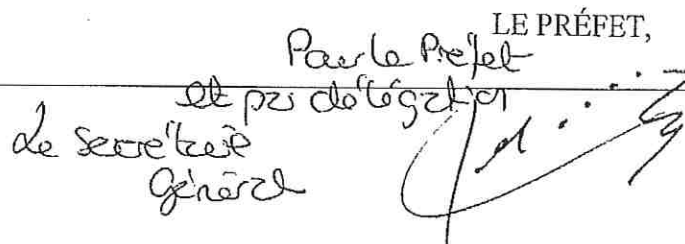 LE PRÉFET,
Pour le Préfet
et par délégation
Le secrétaire
Général